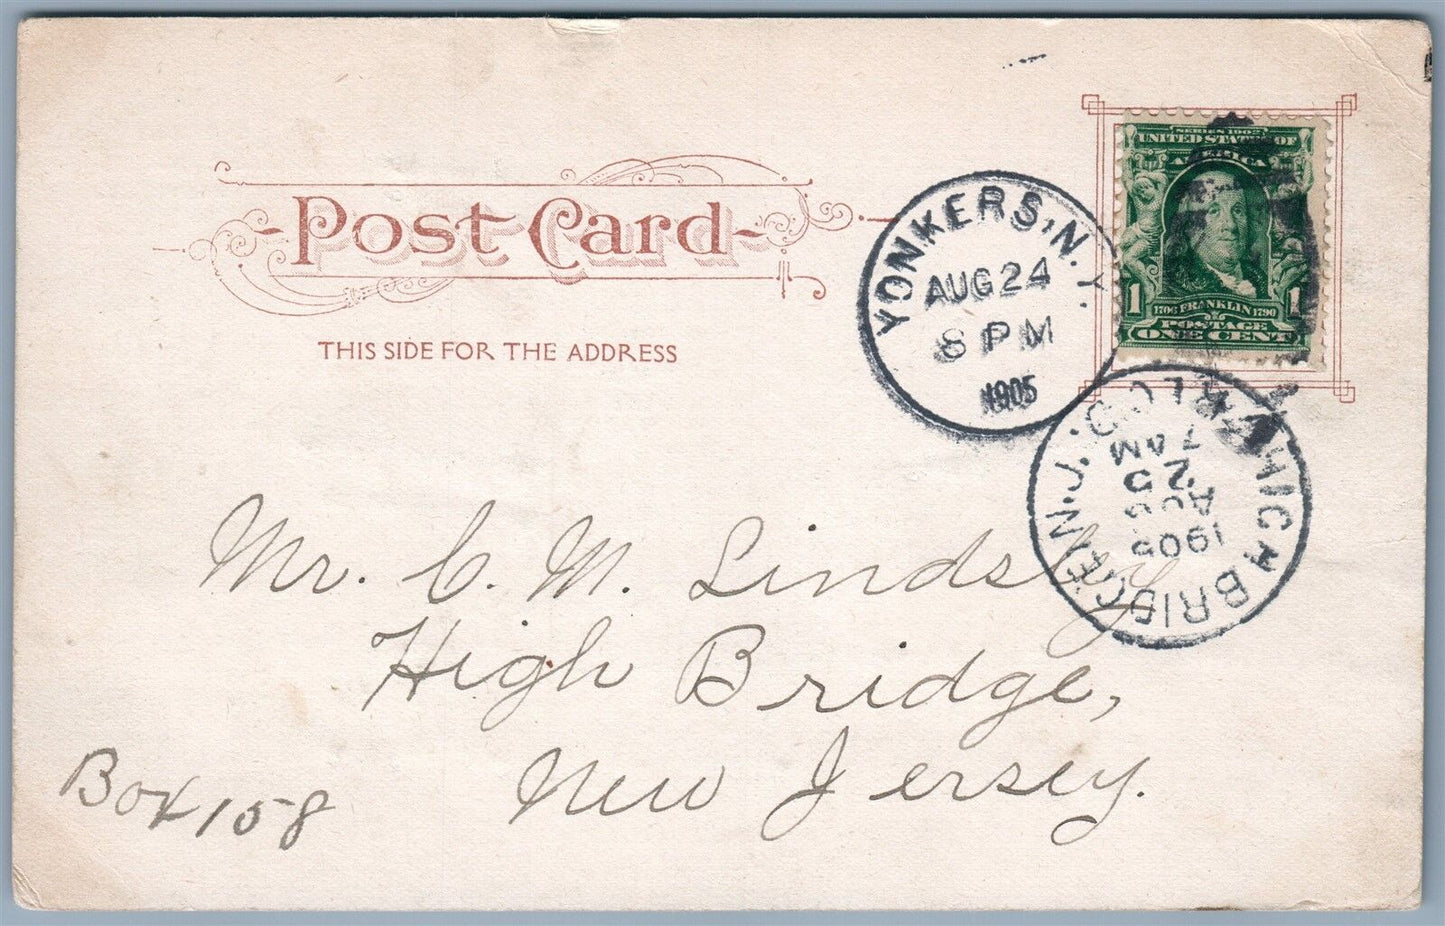 Post Card
THIS SIDE FOR THE ADDRESS
YONKERS, N.Y.
AUG 24
8 PM
1905
SERIES 1902
UNITED STATES OF
AMERICA
1 1
1706 FRANKLIN 1790
POSTAGE
ONE CENT
HIGH BRIDGE N.J.
REC'D.
7 AM
25
AUG
1905
Mr. C. M. Lindsly
High Bridge,
New Jersey.
Box 158